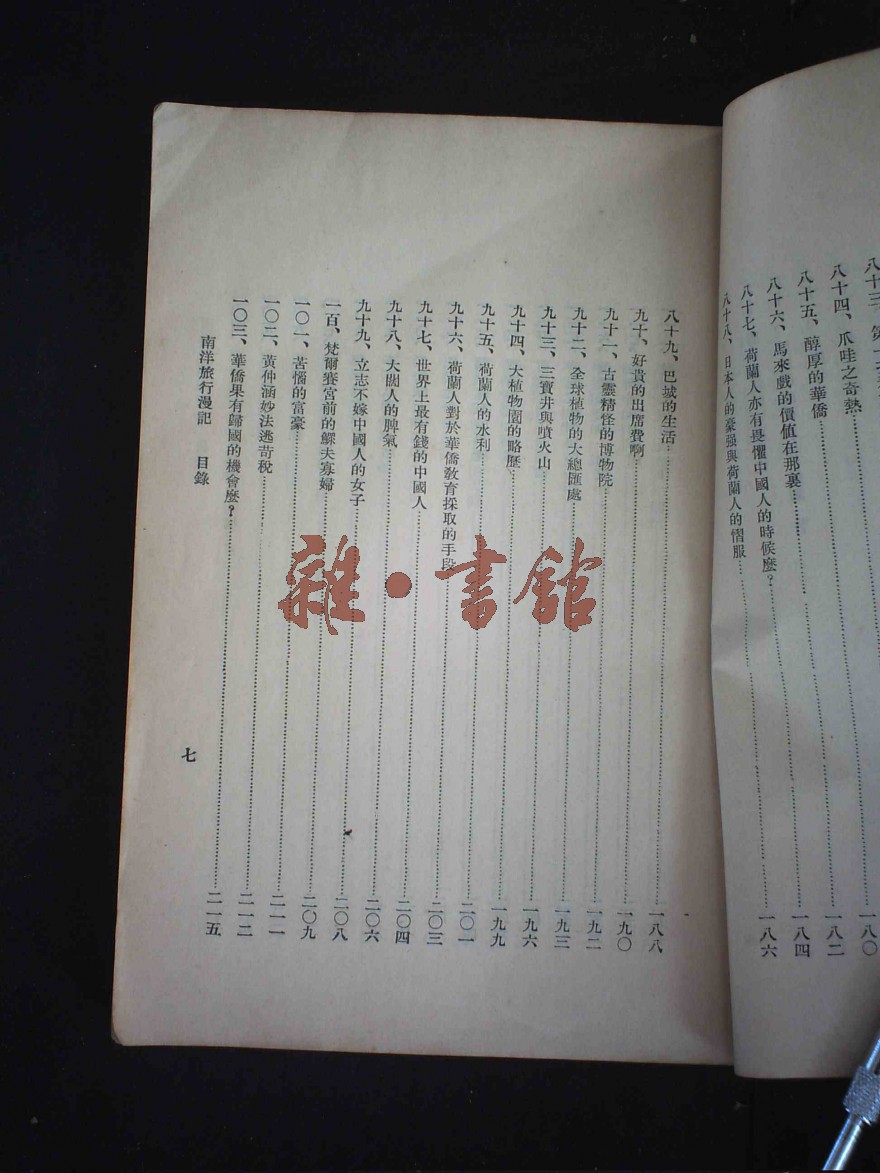 八十三、第
八十四、爪哇之奇熱
八十五、醇厚的華僑……一八〇
八十六、馬來戲的價值在那裏……一八二
八十七、荷蘭人亦有畏懼中國人的時候麼？……一八四
八十八、日本人的豪强與荷蘭人的慴服……一八六
八十九、巴城的生活……一八八
九十、好貴的出席費啊……一九〇
九十一、古靈精怪的博物院……一九二
九十二、全球植物的大總匯處……一九三
九十三、三寶井與噴火山……一九六
九十四、大植物園的略歷……一九九
九十五、荷蘭人的水利……二〇一
九十六、荷蘭人對於華僑敎育採取的手段……二〇三
九十七、世界上最有錢的中國人……二〇四
九十八、大闊人的脾氣……二〇六
九十九、立志不嫁中國人的女子……二〇八
一百、梵爾賽宮前的鰥夫寡婦……二〇九
一〇一、苦惱的富豪……二一一
一〇二、黃仲涵妙法逃苛稅……二一二
一〇三、華僑果有歸國的機會麼？……二一五
南洋旅行漫記　目錄
七
雜·書館